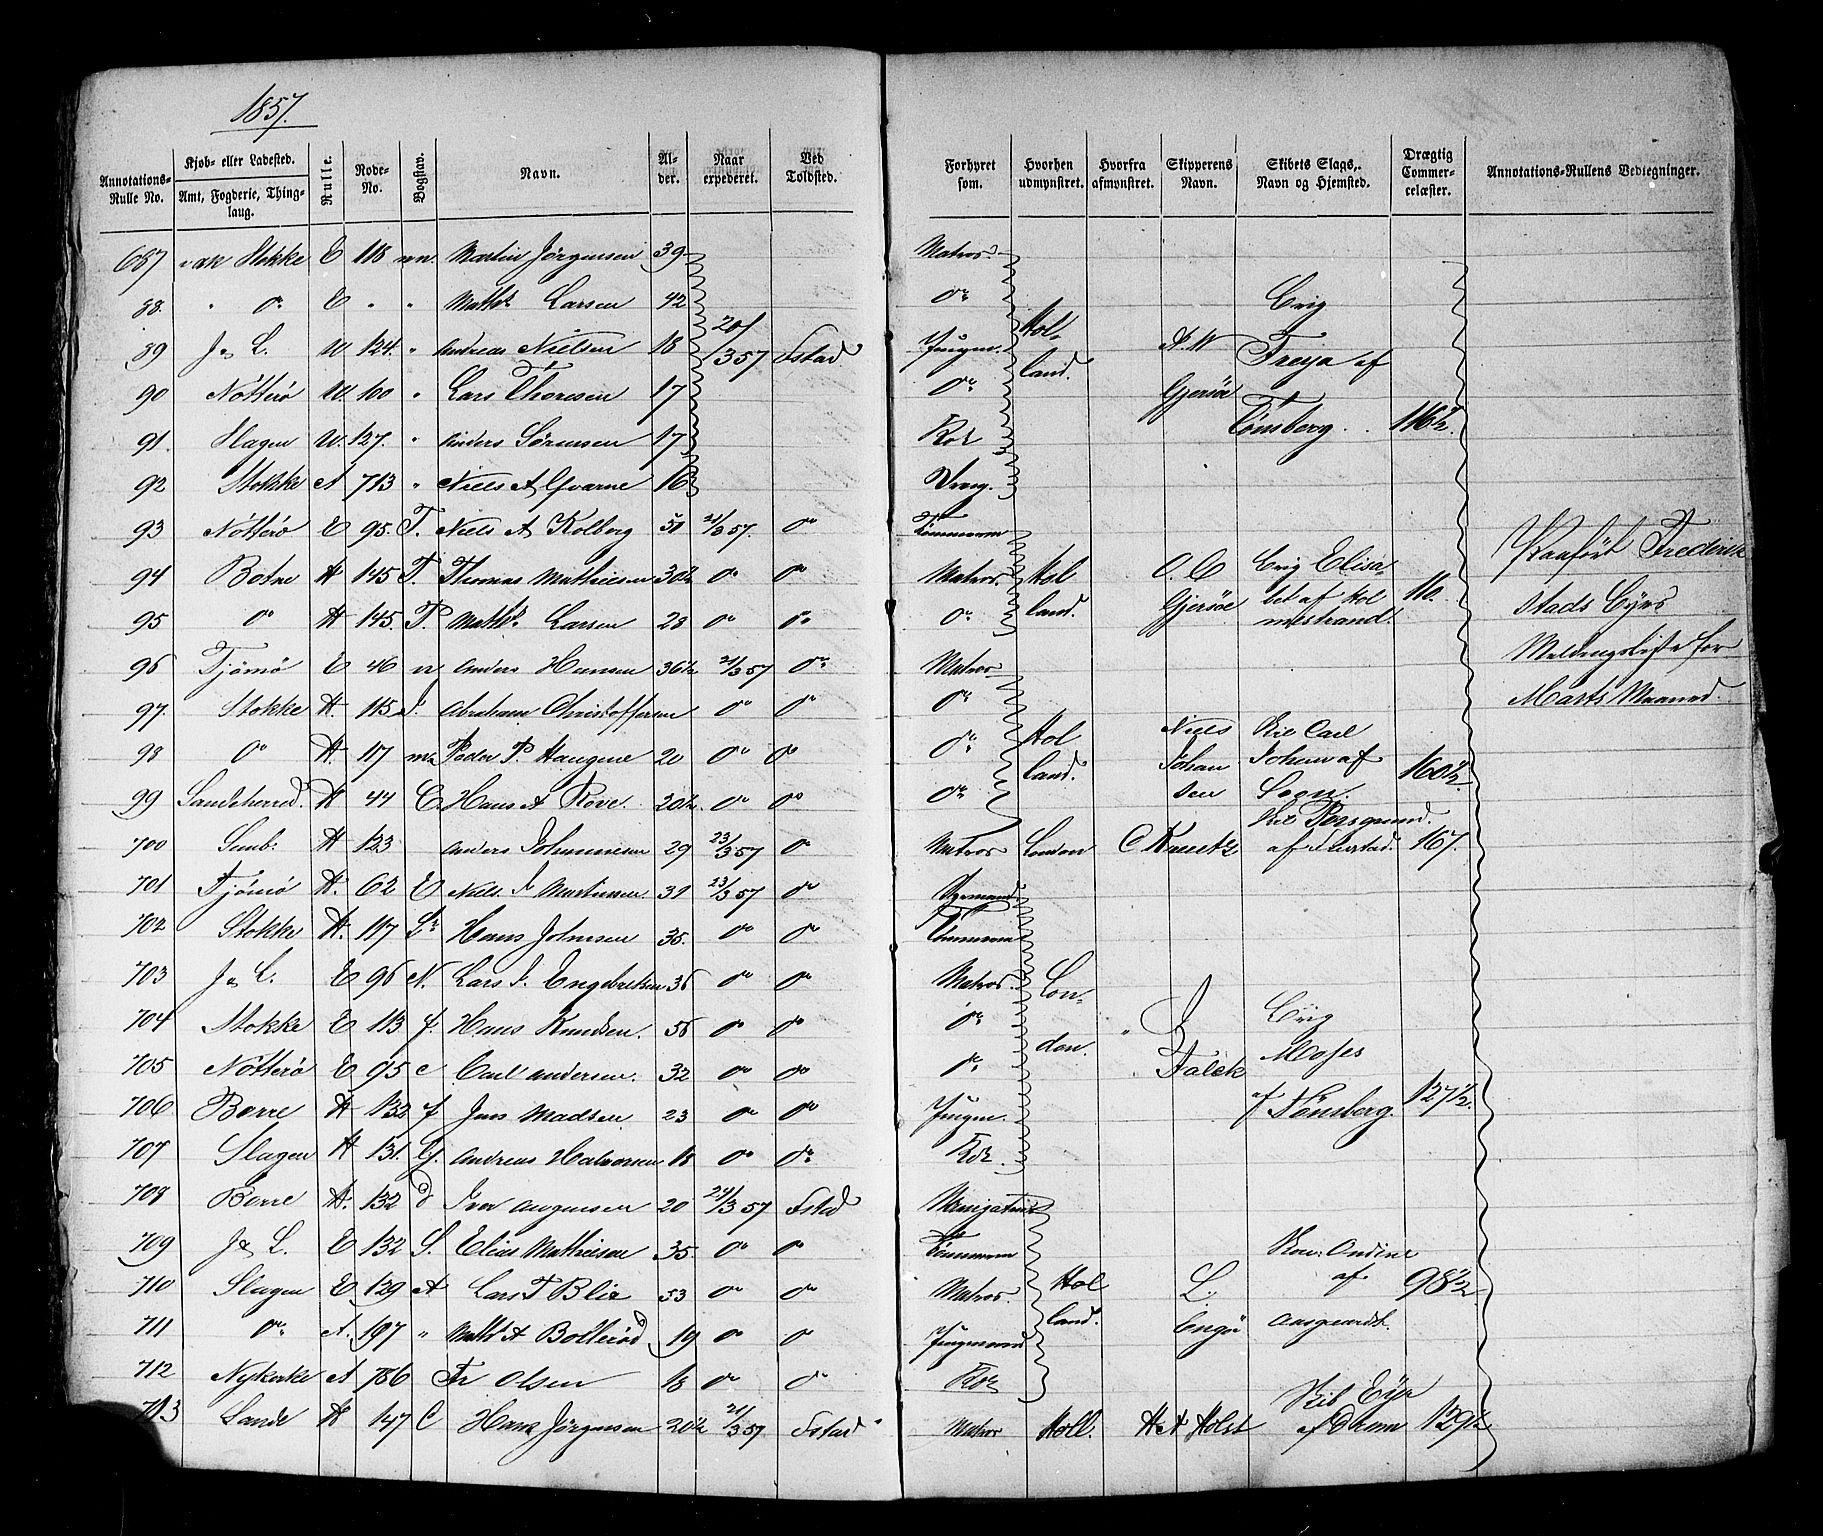 1857.
Annotations-Rulle No. | Kjøb- eller Ladested. Amt, Fogderie, Thinglaug. | Rulle. | Rode-No. | Bogstav. | Navn. | Alder. | Naar expederet. | Ved Toldsted. | Forhyret som. | Hvorhen udmynstret. | Hvorfra afmønstret. | Skipperens Navn. | Skibets Slags, Navn og Hjemsted. | Drægtig Commercelæster. | Annotations-Rullens Vedtegninger.
687 Stokke E 118 Martin Jørgensen 39 Matros
88 " do E " " Maths. Larsen 42 do Brig
89 J & L. U 124. " Andreas Nielsen 18 20/3 57 Fstad Jungm. Holland. A. N Freya af
90 Nötterö U. 100 " Lars Thoresen 17 do Gjersöe
91. Slagen U. 127. " Anders Sörensen 17 Kok Tönsberg. 116½.
92 Stokke A 713 " Niels A 16 Dreng.
93 Nötterö E 95. T. Niels A Kolberg 51 21/3 57. do Tömmerm Paafört Frederik
94 Botne H 145 T. Thomas Mathiesen 30½ do do Matros Holland. O. C Gjersöe Brig Elisabet af Holmestrand. 110. stads Byes
95 do H 145. P. Maths. Larsen 28 do do do
96 Tjömö E 46 Anders Hansen 36½ 21/3 57 do Matros Meldingsliste for
97. Stokke H. 115 Abraham Christoffersen do do do Marts Maaned.
98 do H. 117 Peder P. Haugene 20 do do do Holland. Niels Johansen Carl Johan af
99 Sandeherred. H 44 C. Hans A Rove 20½. do do do 160½
700 H 123 Anders Johannesen 29 23/3 57 do Matros London C Skib Porsgrund. af Fstad. 167.
701 Tjömö H. 62 E Niels J Martinsen 31 23/3 57 do Styrmand
702 Stokke H. 117 Hans Johnsen 35. do do Tömmerm
703 J & L. E 96 N. Lars J. Engebretsen 36 do do Matros London.
704 Stokke E 113 f. Hans Knudsen. 56 do do do " Brig
705 Nötterö E 95 c Carl Andersen. 32 do do do Falck Moses
706 Borre H 132 f Jens Madsen 23 do do Jungm. af Tönsberg. 127½.
707 Slagen H 131. G. Andreas Halvorsen 18 do do Kok.
708 Borre H. 132 d Iver Augensen 20 24/3 57 Fstad
709 J & L. E 132 S. Elias Mathiesen 35. do do Tömmerm
710 Slagen E 139 A Lars T Blie 53 do do Matros. Holland. L. Engö Andine af Aasgaardst. 98½.
711 do A. 197 " Maths A Bolleröd 19 do do Jungmand
712 Nykirke A 786 Fr Olsen 18 do do Kok
713 Sande H 147 C Hans Jörgensen 20½ 21/3 57 Fstad Matros Holl. H A Holst Skib af Dramn 129½